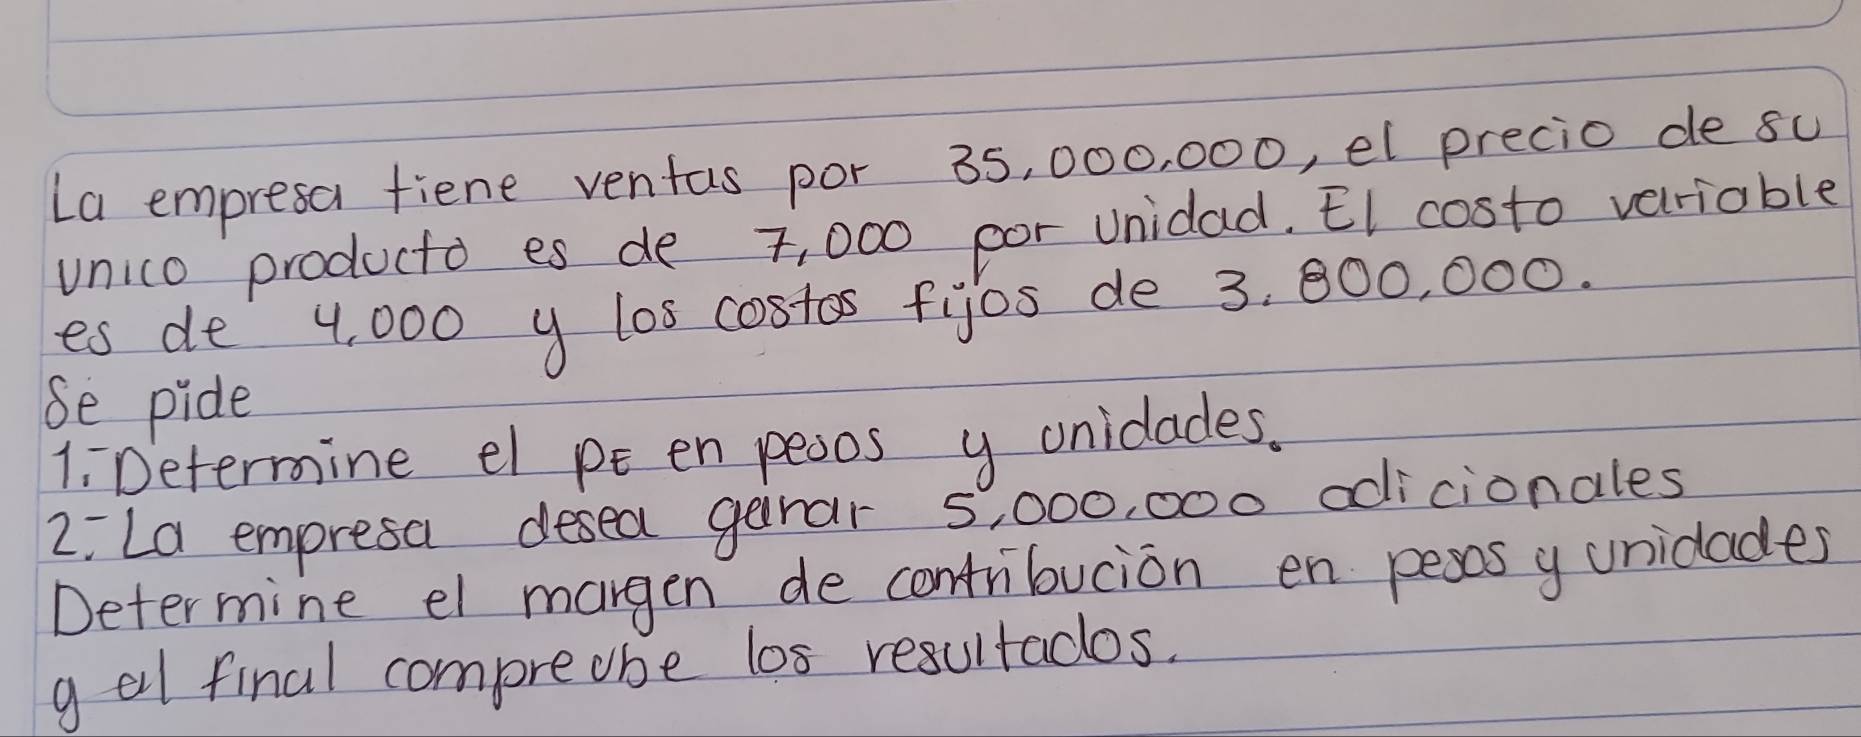 La empresa tiene ventas por 35,000,000, el precio de su
unico producto es de 7,000 por unidad. El costo variable
es de 4,000 y los costos fijos de 3.800,000.
Se pide
1.- Determine el PE en pesos y unidades.
2.- La empresa desea ganar 5,000,000 adicionales
Determine el margen de contribución en pesos y unidades
y al final compreube los resultados.